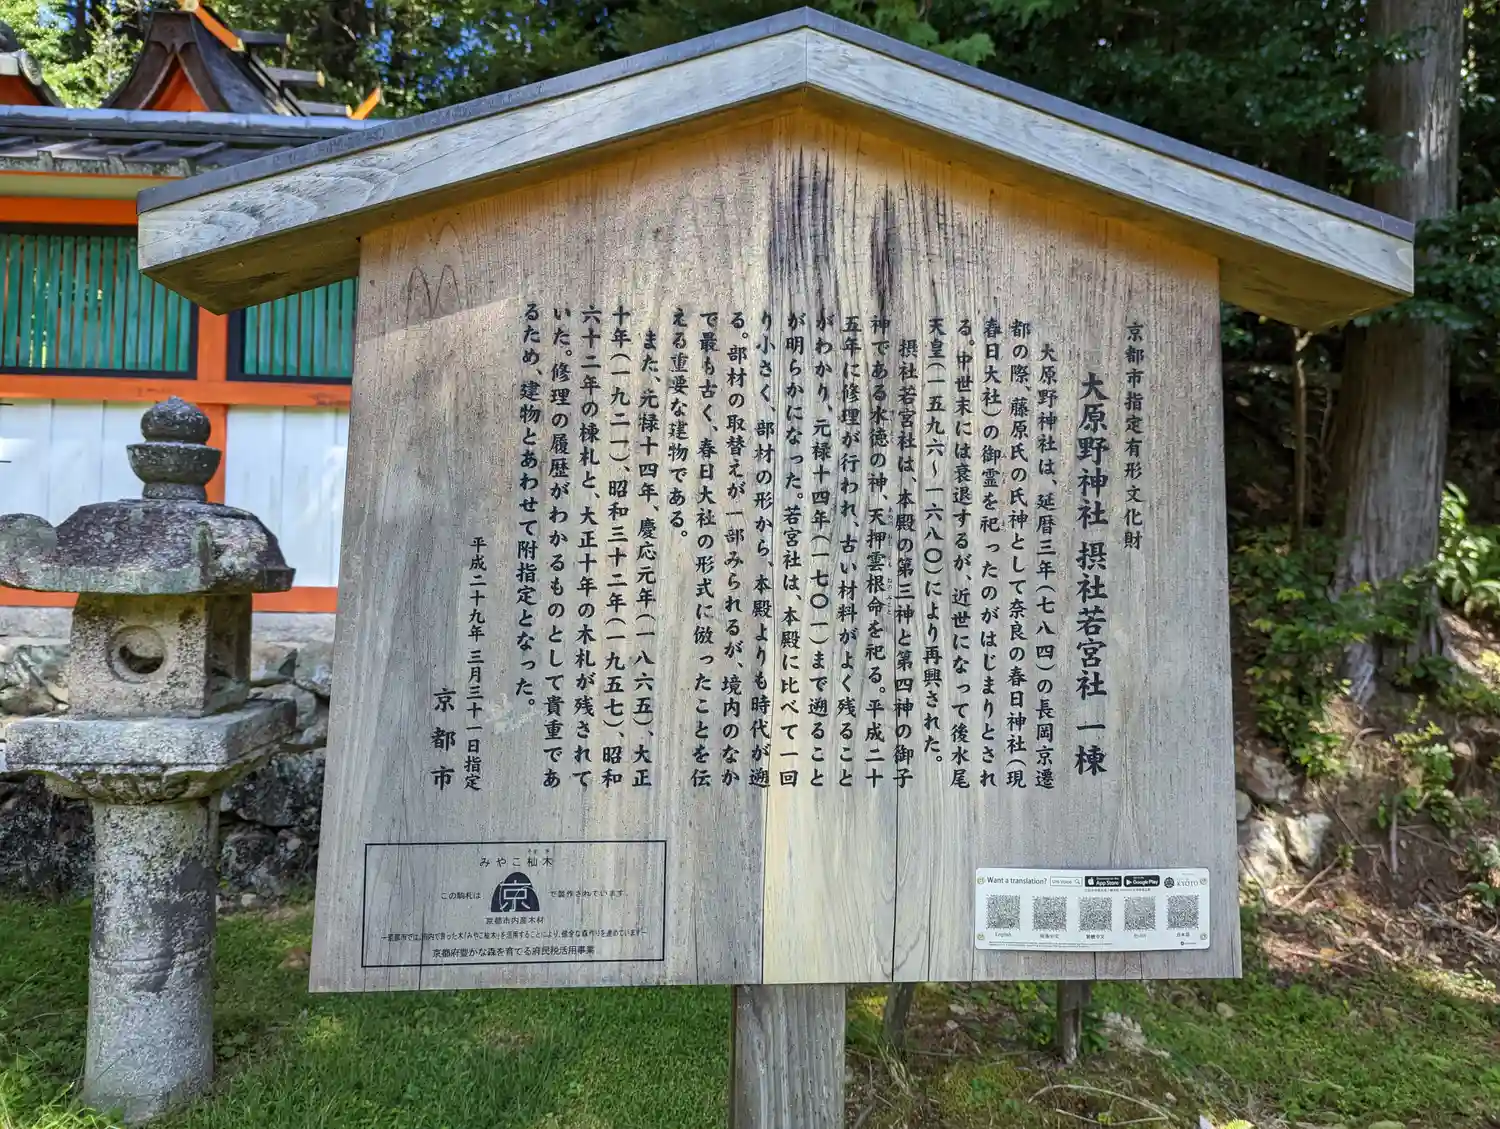 京都市指定有形文化財
大原野神社 摂社若宮社 一棟
大原野神社は、延暦三年(七八四)の長岡京遷
都の際、藤原氏の氏神として奈良の春日神社(現
春日大社)の御霊を祀ったのがはじまりとされ
る。中世末には衰退するが、近世になって後水尾
天皇(一五九六〜一六八〇)により再興された。
摂社若宮社は、本殿の第三神と第四神の御子
神である水徳の神、天押雲根命を祀る。平成二十
五年に修理が行われ、古い材料がよく残ること
がわかり、元禄十四年(一七〇一)まで遡ること
が明らかになった。若宮社は、本殿に比べて一回
り小さく、部材の形から、本殿よりも時代が遡
る。部材の取替えが一部みられるが、境内のなか
で最も古く、春日大社の形式に倣ったことを伝
える重要な建物である。
また、元禄十四年、慶応元年(一八六五)、大正
十年(一九二一)、昭和三十二年(一九五七)、昭和
六十二年の棟札と、大正十年の木札が残されて
いた。修理の履歴がわかるものとして貴重であ
るため、建物とあわせて附指定となった。
平成二十九年三月三十一日指定
京都市
みやこ杣木
この駒札は
京
で製作されています。
京都市内産木材
京都府豊かな森を育てる府民税活用事業
Want a translation?
App Store
Google Play
KYOTO
English